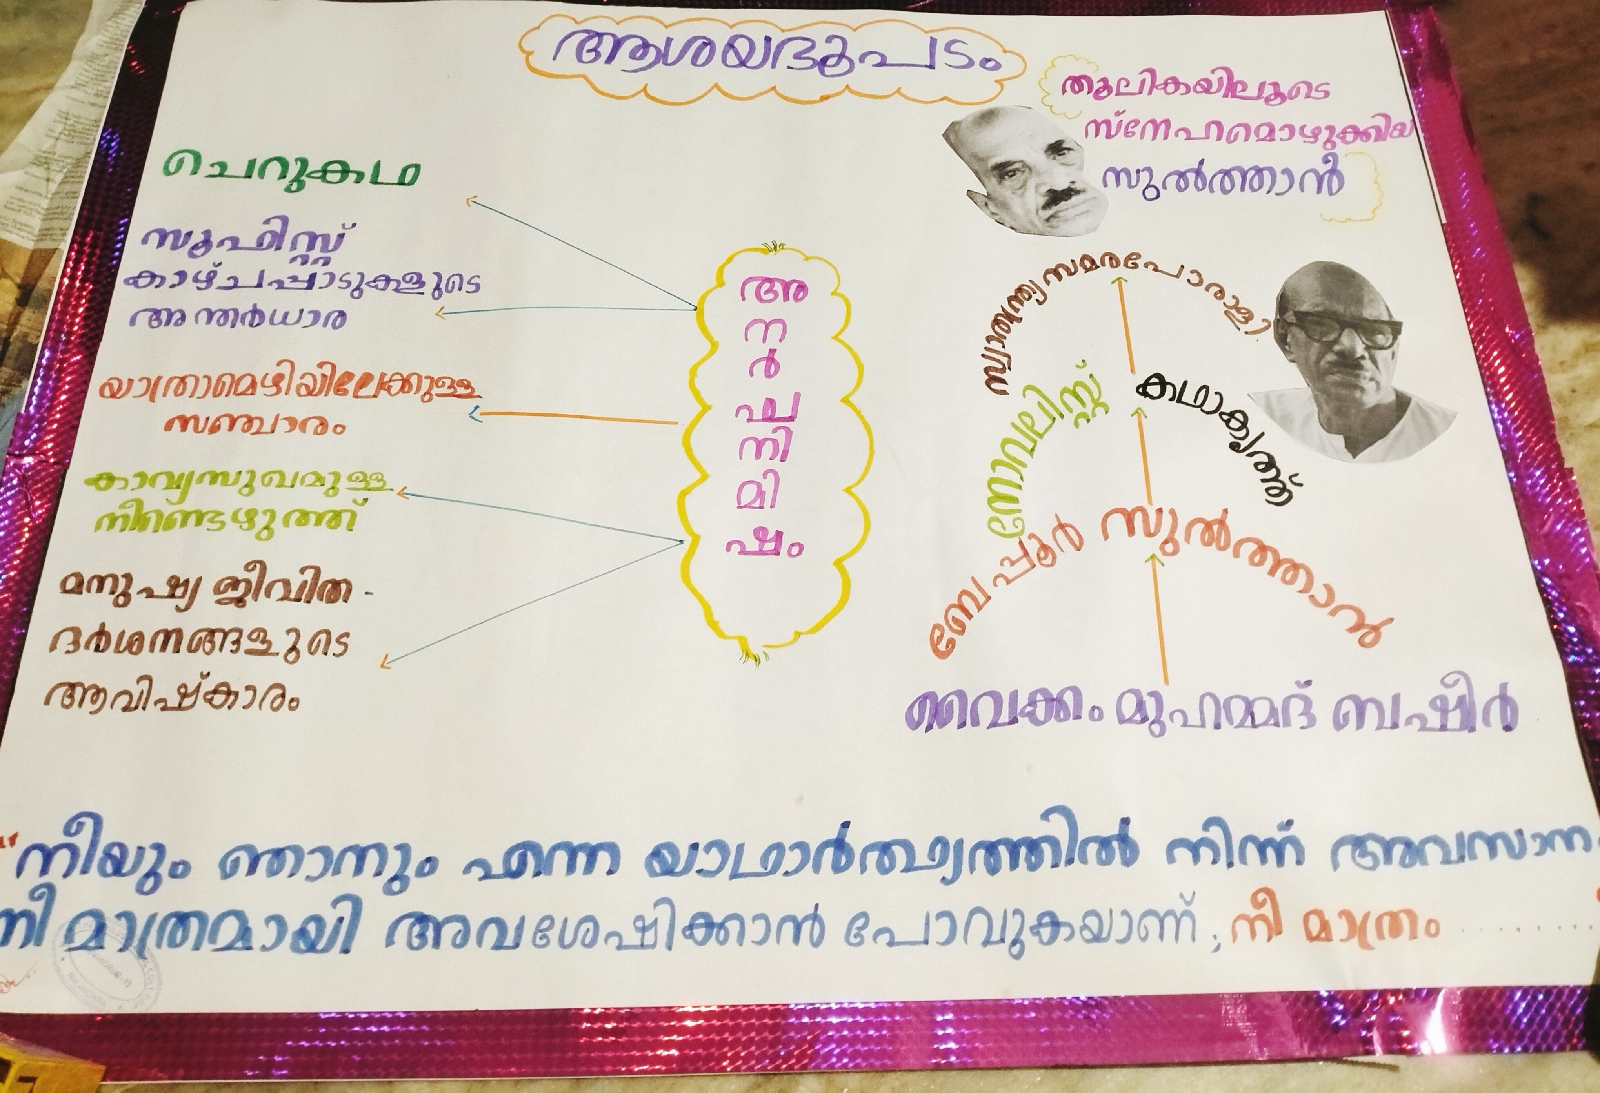 ആശയഭൂപടം
തൂലികയിലൂടെ
സ്നേഹമൊഴുക്കിയ
സുൽത്താൻ
ചെറുകഥ
സൂഫിസ്റ്റ്
കാഴ്ചപ്പാടുകളുടെ
അന്തർധാര
യാത്രാമൊഴിയിലേക്കുള്ള
സഞ്ചാരം
കാവ്യസുഖമുള്ള
നീണ്ടെഴുത്ത്
മനുഷ്യ ജീവിത -
ദർശനങ്ങളുടെ
ആവിഷ്കാരം
അ
ന
ർ
ഘ
നി
മി
ഷം
സ്വാതന്ത്ര്യസമരപോരാളി
നോവലിസ്റ്റ്
കഥാകൃത്ത്
ബേപ്പൂർ സുൽത്താൻ
വൈക്കം മുഹമ്മദ് ബഷീർ
"നീയും ഞാനും എന്ന യാഥാർത്ഥ്യത്തിൽ നിന്ന് അവസാന
നീ മാത്രമായി അവശേഷിക്കാൻ പോവുകയാണ്; നീ മാത്രം ........